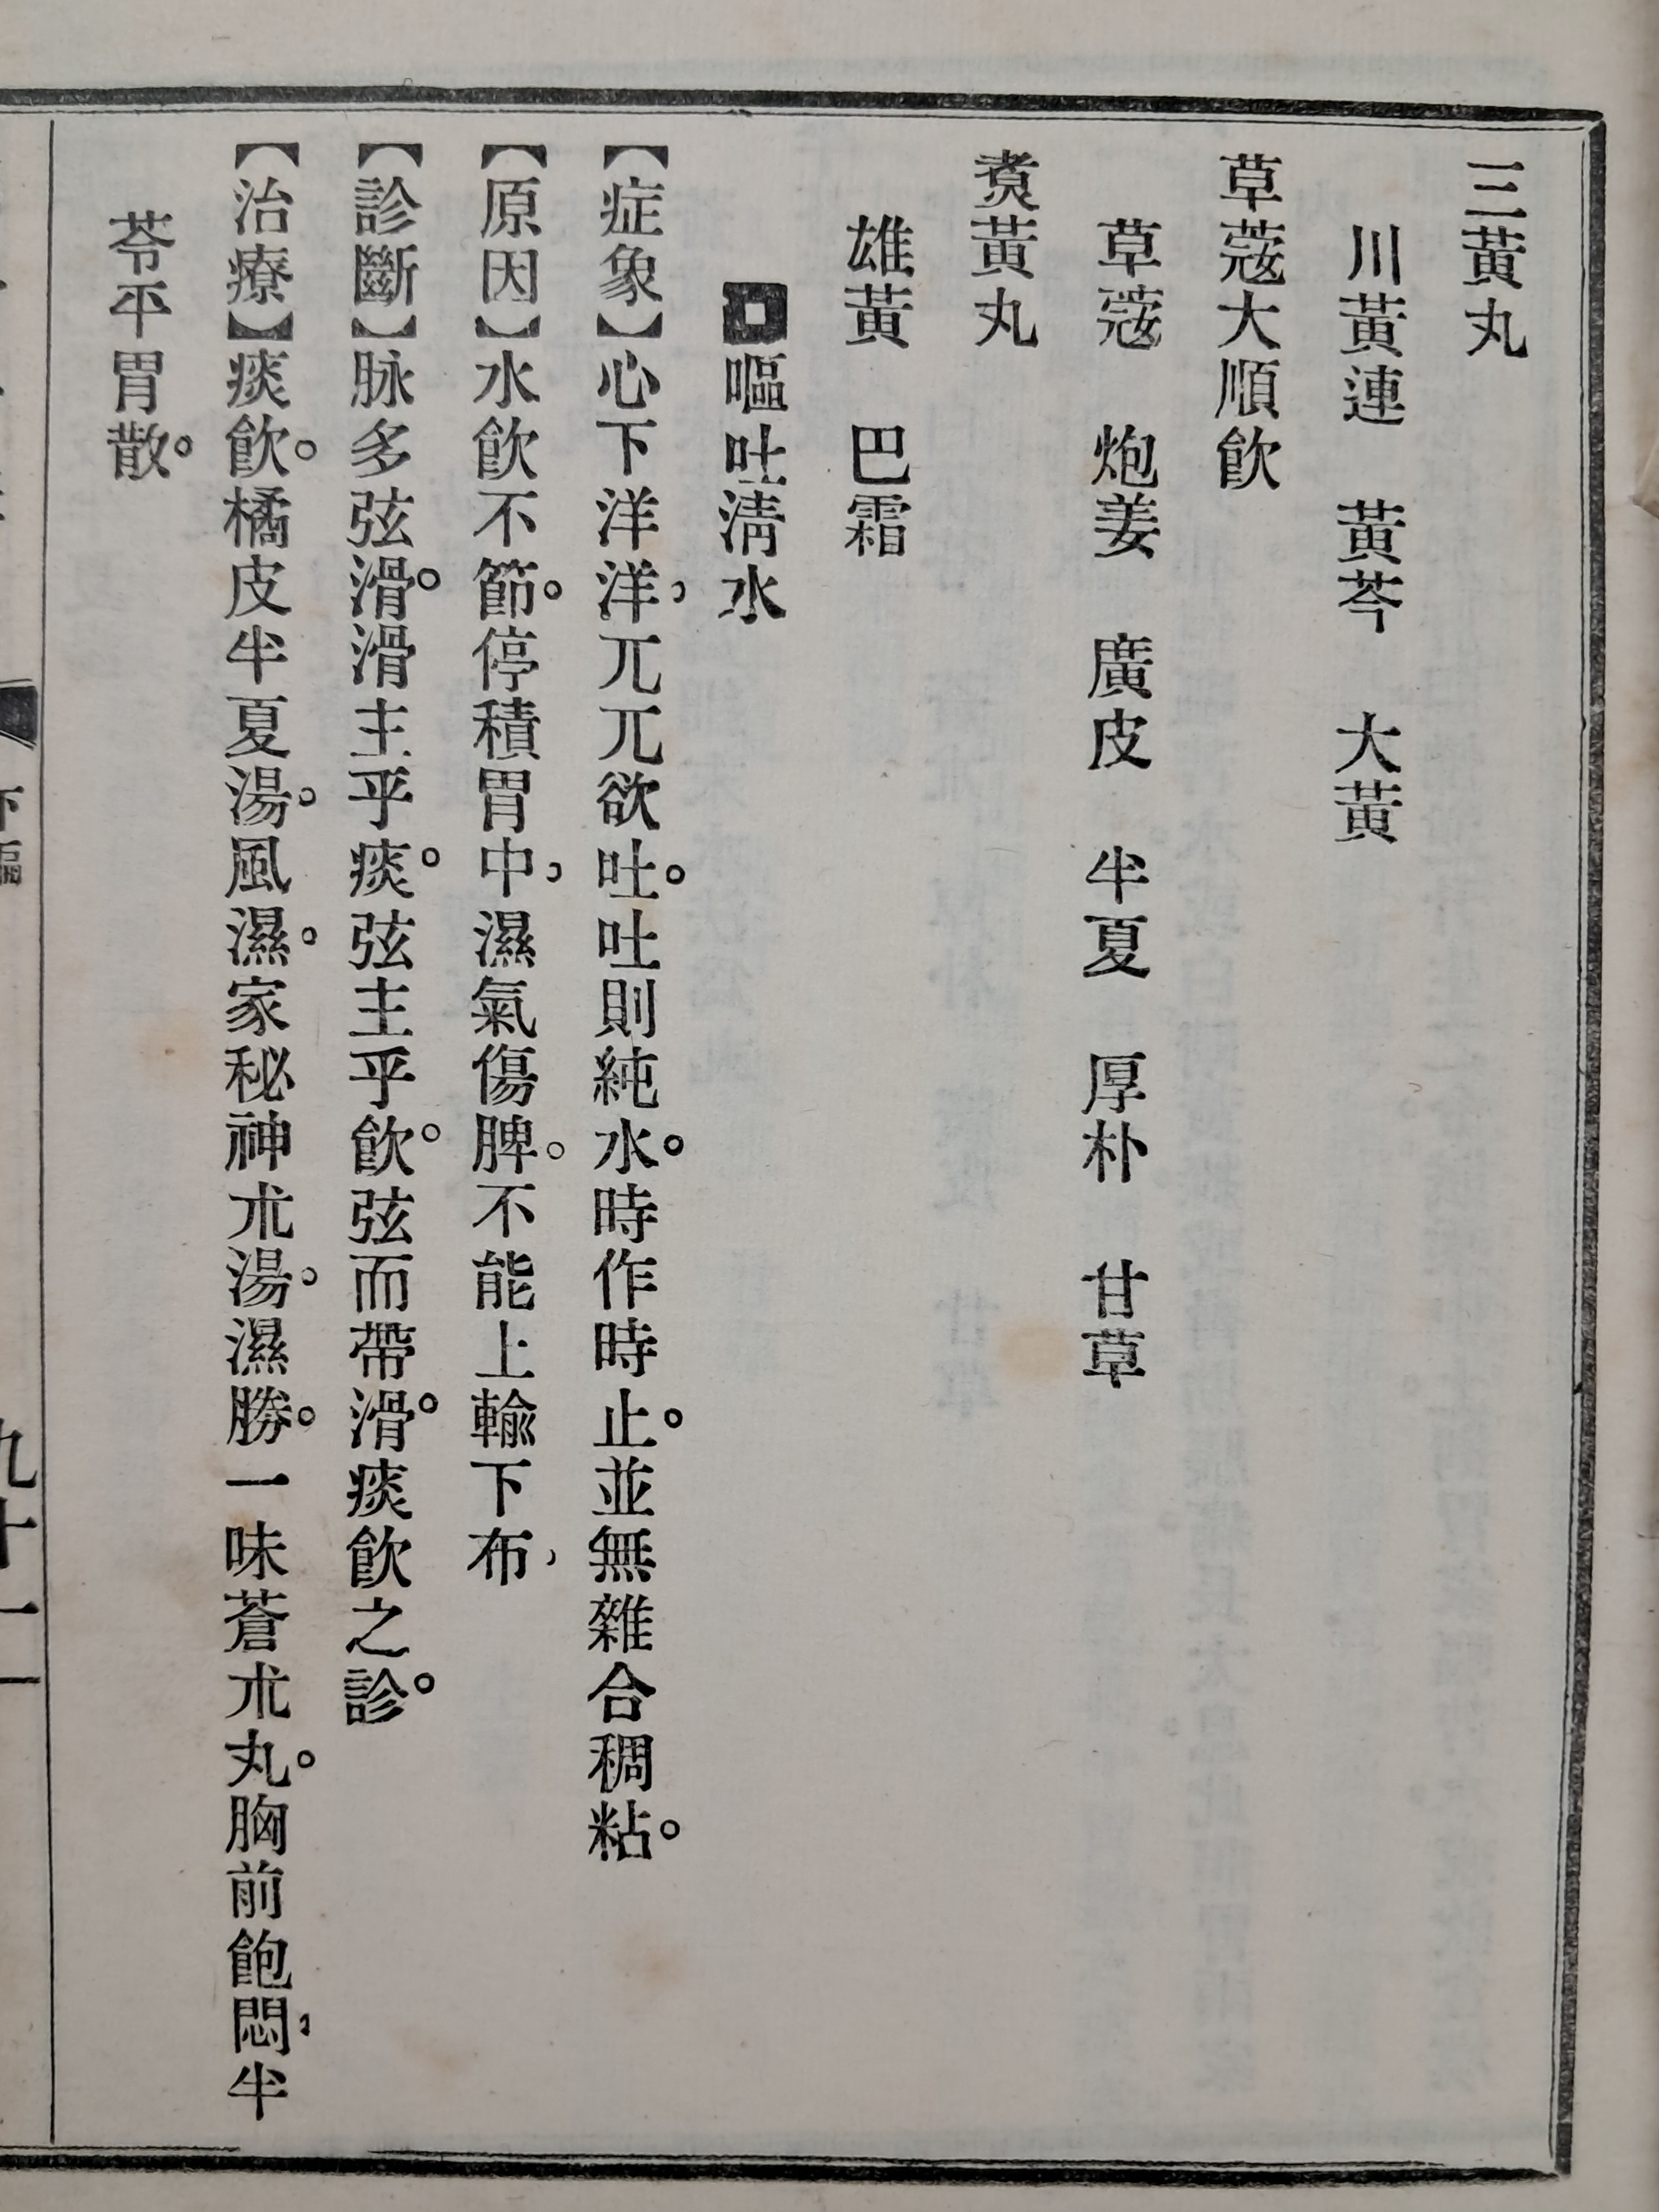 三黃丸
川黃連　黃芩　大黃
草蔻大順飲
草蔻　炮姜　廣皮　半夏　厚朴　甘草
煑黃丸
雄黃　巴霜
嘔吐淸水
【症象】心下洋洋，兀兀欲吐。吐則純水。時作時止。並無雜合稠粘。
【原因】水飲不節。停積胃中，濕氣傷脾。不能上輸下布，
【診斷】脉多弦滑。滑主乎痰。弦主乎飲。弦而帶滑。痰飲之診。
【治療】痰飲。橘皮半夏湯。風濕。家秘神朮湯。濕勝。一味蒼朮丸。胸前飽悶，半
苓平胃散。
九十一